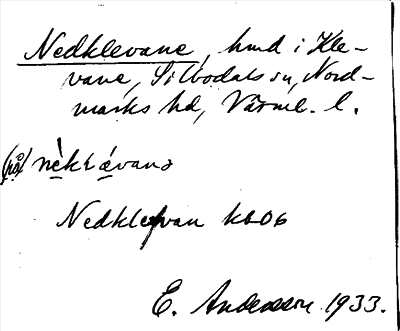 Nedklevane, hmd i Kle-
vane, Silbodals sn, Nord-
marks hd, Värml. l.
(på)
Nedklevan kb06
E. Andersson 1933.